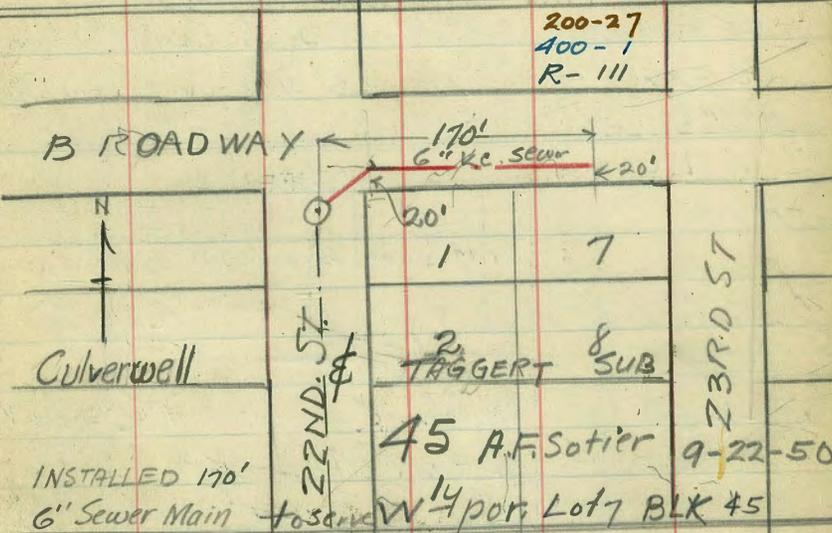 200-27
400-1
R-111
BROADWAY
170'
6" V.C. sewer
20'
20'
N
1 7
22ND. ST.
23RD ST
2 8
Culverwell
TAGGERT SUB
45 A.F. Sotier
9-22-50
INSTALLED 170'
6" Sewer Main to serve W 14 por. Lot 7 BLK 45